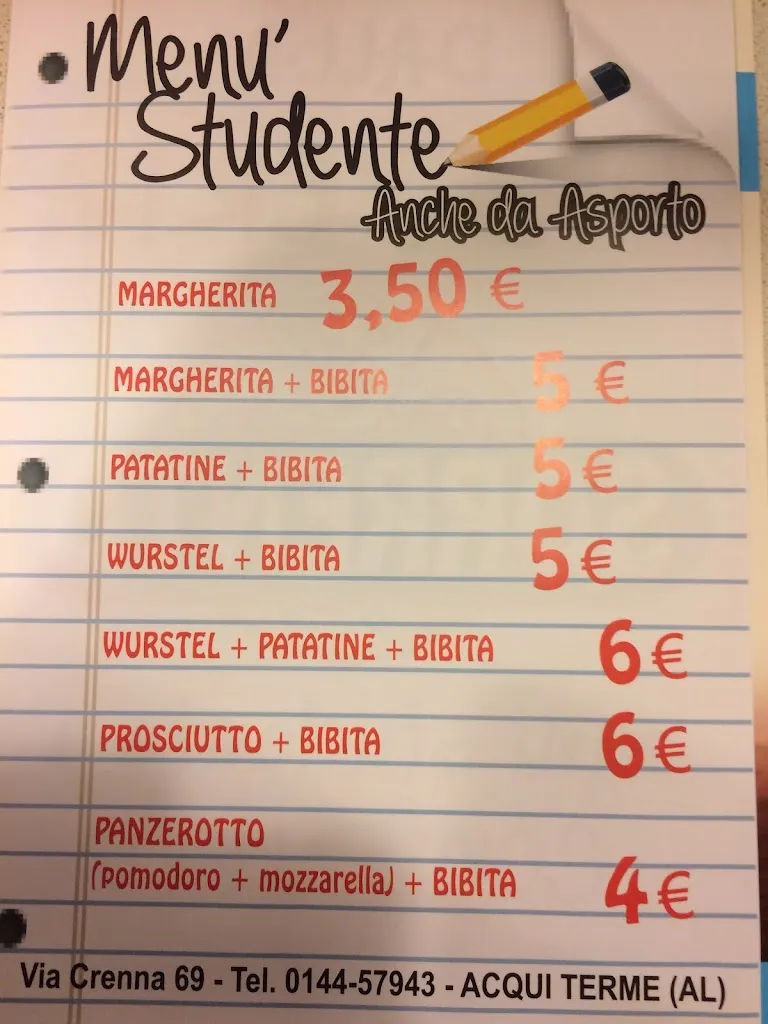 Menu'
Studente
Anche da Asporto
MARGHERITA 3,50 €
MARGHERITA + BIBITA 5 €
PATATINE + BIBITA 5 €
WURSTEL + BIBITA 5 €
WURSTEL + PATATINE + BIBITA 6 €
PROSCIUTTO + BIBITA 6 €
PANZEROTTO
(pomodoro + mozzarella) + BIBITA 4 €
Via Crenna 69 - Tel. 0144-57943 - ACQUI TERME (AL)